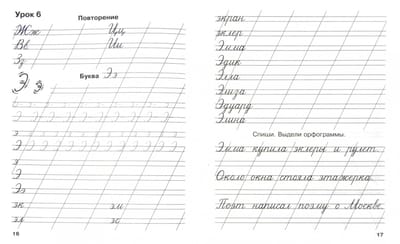 Урок 6
Повторение
Жж Цц
Вв Ии
Зз
Буква Ээ
э
Э
э
Э
Ээ
эк эм
эл эс
16
экран
эклер
Эмма
Эдик
Элла
Элиза
Эдуард
Элина
Спиши. Выдели орфограммы.
Эмма купила эклеры и рулет.
Около окна стояла этажерка.
Поэт написал поэму о Москве.
17